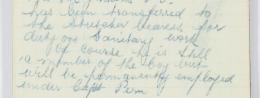 has been transferred to
the stretcher bearers for
duty on Sanitary work
Of course he is still
a member of the Coy but
will be permanently employed
under Capt Penn